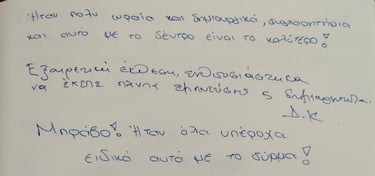 Ήταν πολύ ωραία και δημιουργικό, συγχαρητήρια
και αυτό με το δέντρο είναι το καλύτερο!
Εξαιρετική έκθεση, ενθουσιάστηκα
να έχετε πάντα έμπνευση ς
Δ.Κ
Μπράβο! Ήταν όλα υπέροχα
ειδικά αυτό με το σύρμα!